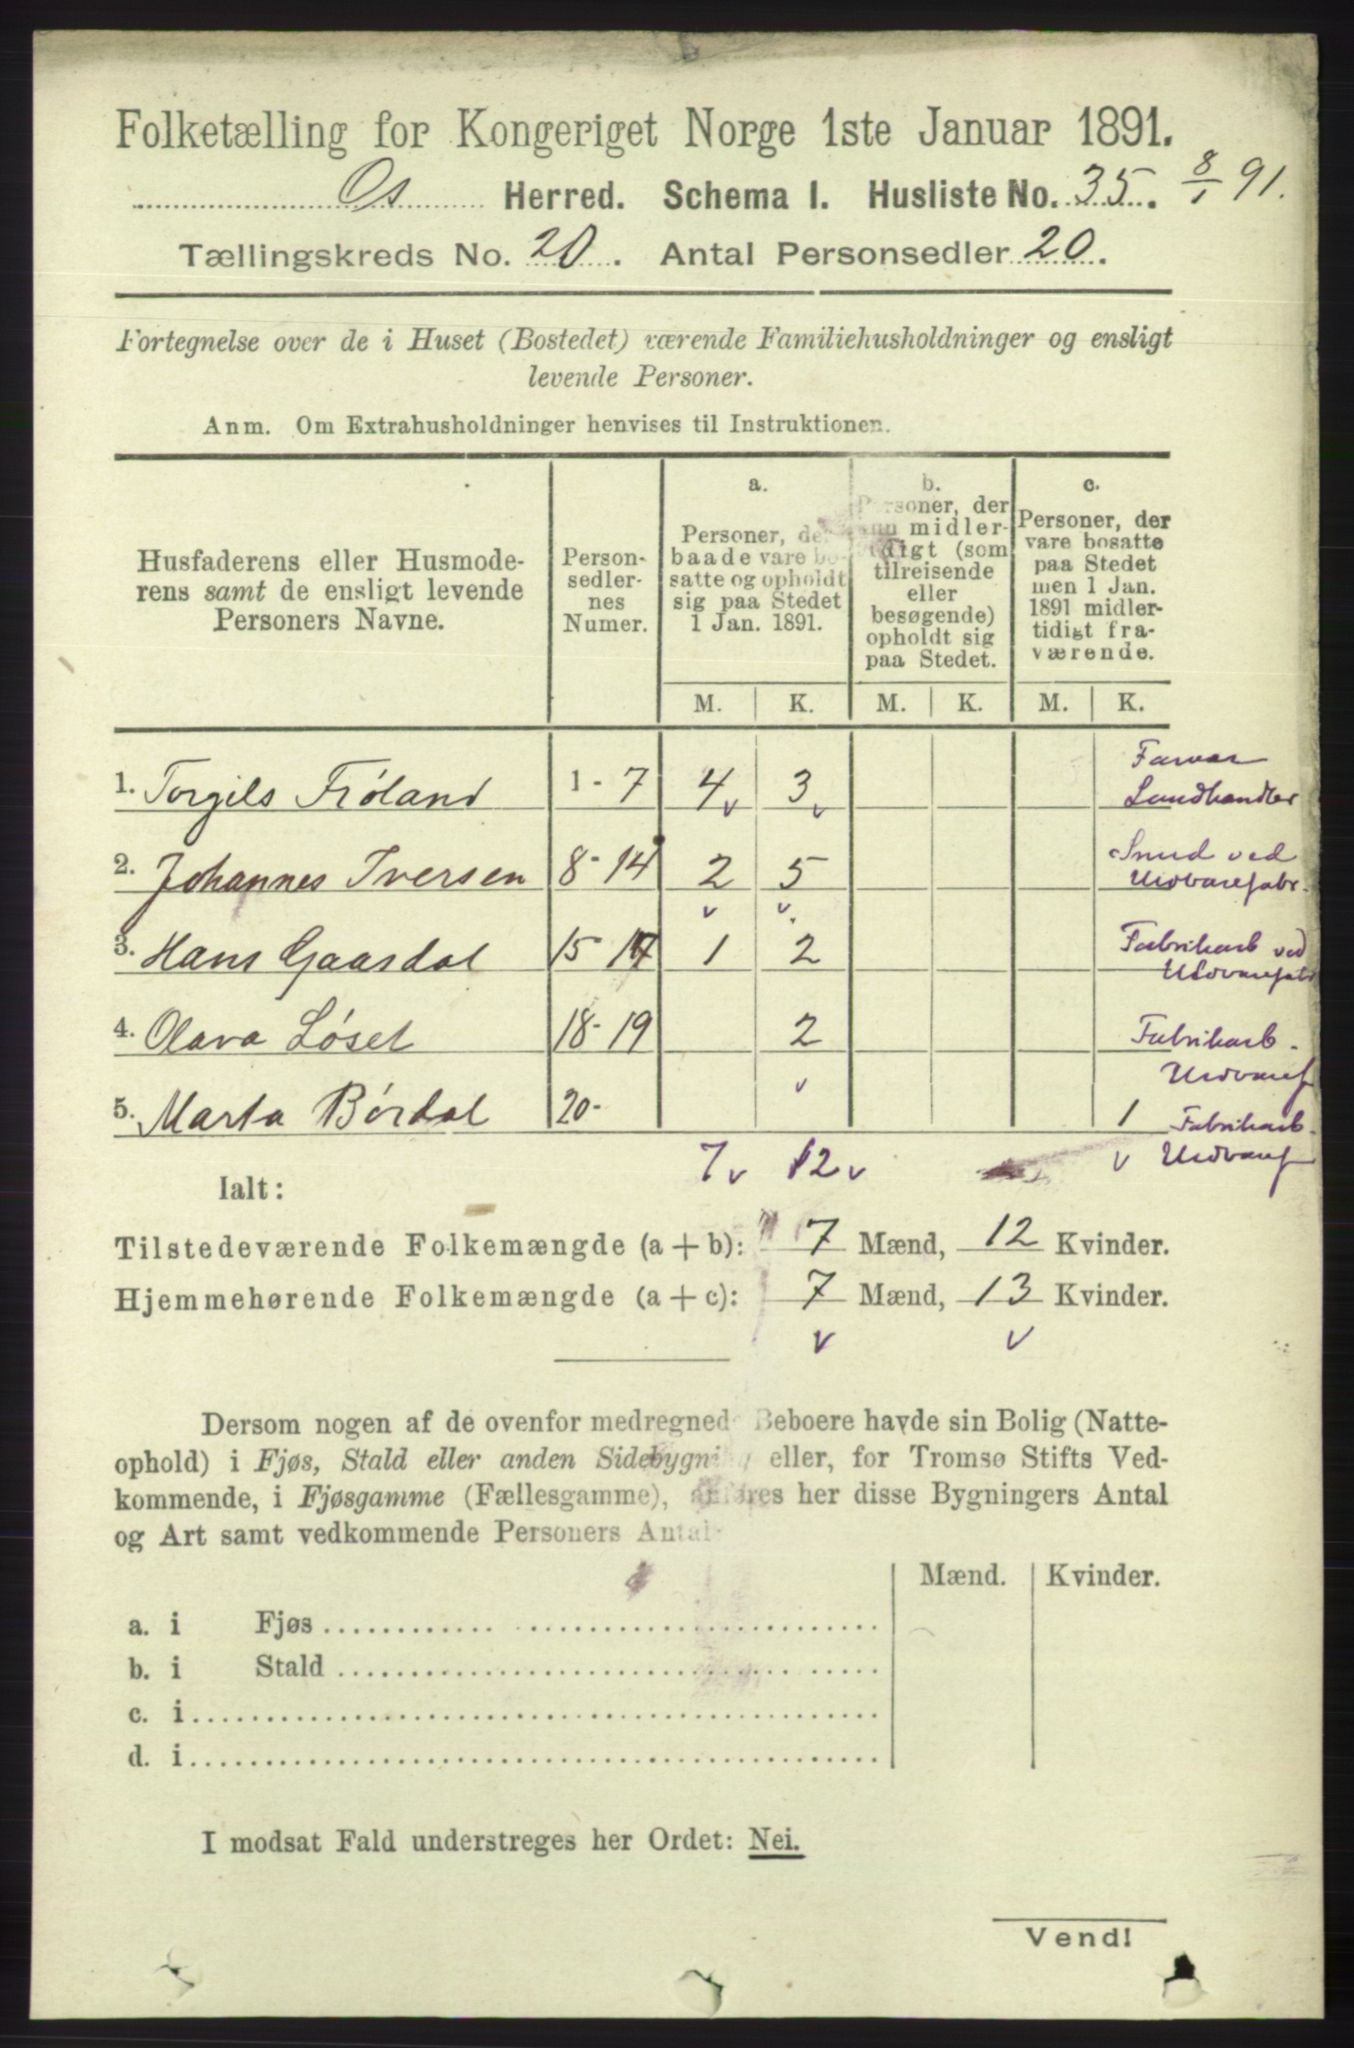 Folketælling for Kongeriget Norge 1ste Januar 1891.
Os Herred. Schema I. Husliste No. 35. 8/1 91.
Tællingskreds No. 20. Antal Personsedler 20.
Fortegnelse over de i Huset (Bostedet) værende Familiehusholdninger og ensligt
levende Personer.
Anm. Om Extrahusholdninger henvises til Instruktionen.
Husfaderens eller Husmode-
rens samt de ensligt levende
Personers Navne.
Person-
sedler-
nes
Numer.
a.
Personer, der
baade vare bo-
satte og opholdt
sig paa Stedet
1 Jan. 1891.
b.
Personer, der
kun midler-
tidigt (som
tilreisende
eller
besøgende)
opholdt sig
paa Stedet.
c.
Personer, der
vare bosatte
paa Stedet
men 1 Jan.
1891 midler-
tidigt fra-
værende.
M. K. M. K. M. K.
1. Torgils Frøland 1 - 7 4 v 3 v Farver Landhandler
2. Johannes Iversen 8 - 14 2 v 5 v Smed ved Uldvarefabr.
3. Hans Gaasdal 15 - 17 1 2 Fabrikarb ved Uldvarefabr
4. Olava Løset 18 - 19 2 v Fabrikarb. Uldvaref
5. Marta Børdal 20 - 1 v Fabrikarb. Uldvaref
Ialt: 7 v 12 v
Tilstedeværende Folkemængde (a + b): 7 Mænd, 12 Kvinder.
Hjemmehørende Folkemængde (a + c): 7 Mænd, 13 Kvinder.
v v
Dersom nogen af de ovenfor medregnede Beboere havde sin Bolig (Natte-
ophold) i Fjøs, Stald eller anden Sidebygning eller, for Tromsø Stifts Ved-
kommende, i Fjøsgamme (Fællesgamme), anføres her disse Bygningers Antal
og Art samt vedkommende Personers Antal
Mænd. Kvinder.
a. i Fjøs
b. i Stald
c. i
d. i
I modsat Fald understreges her Ordet: Nei.
Vend!